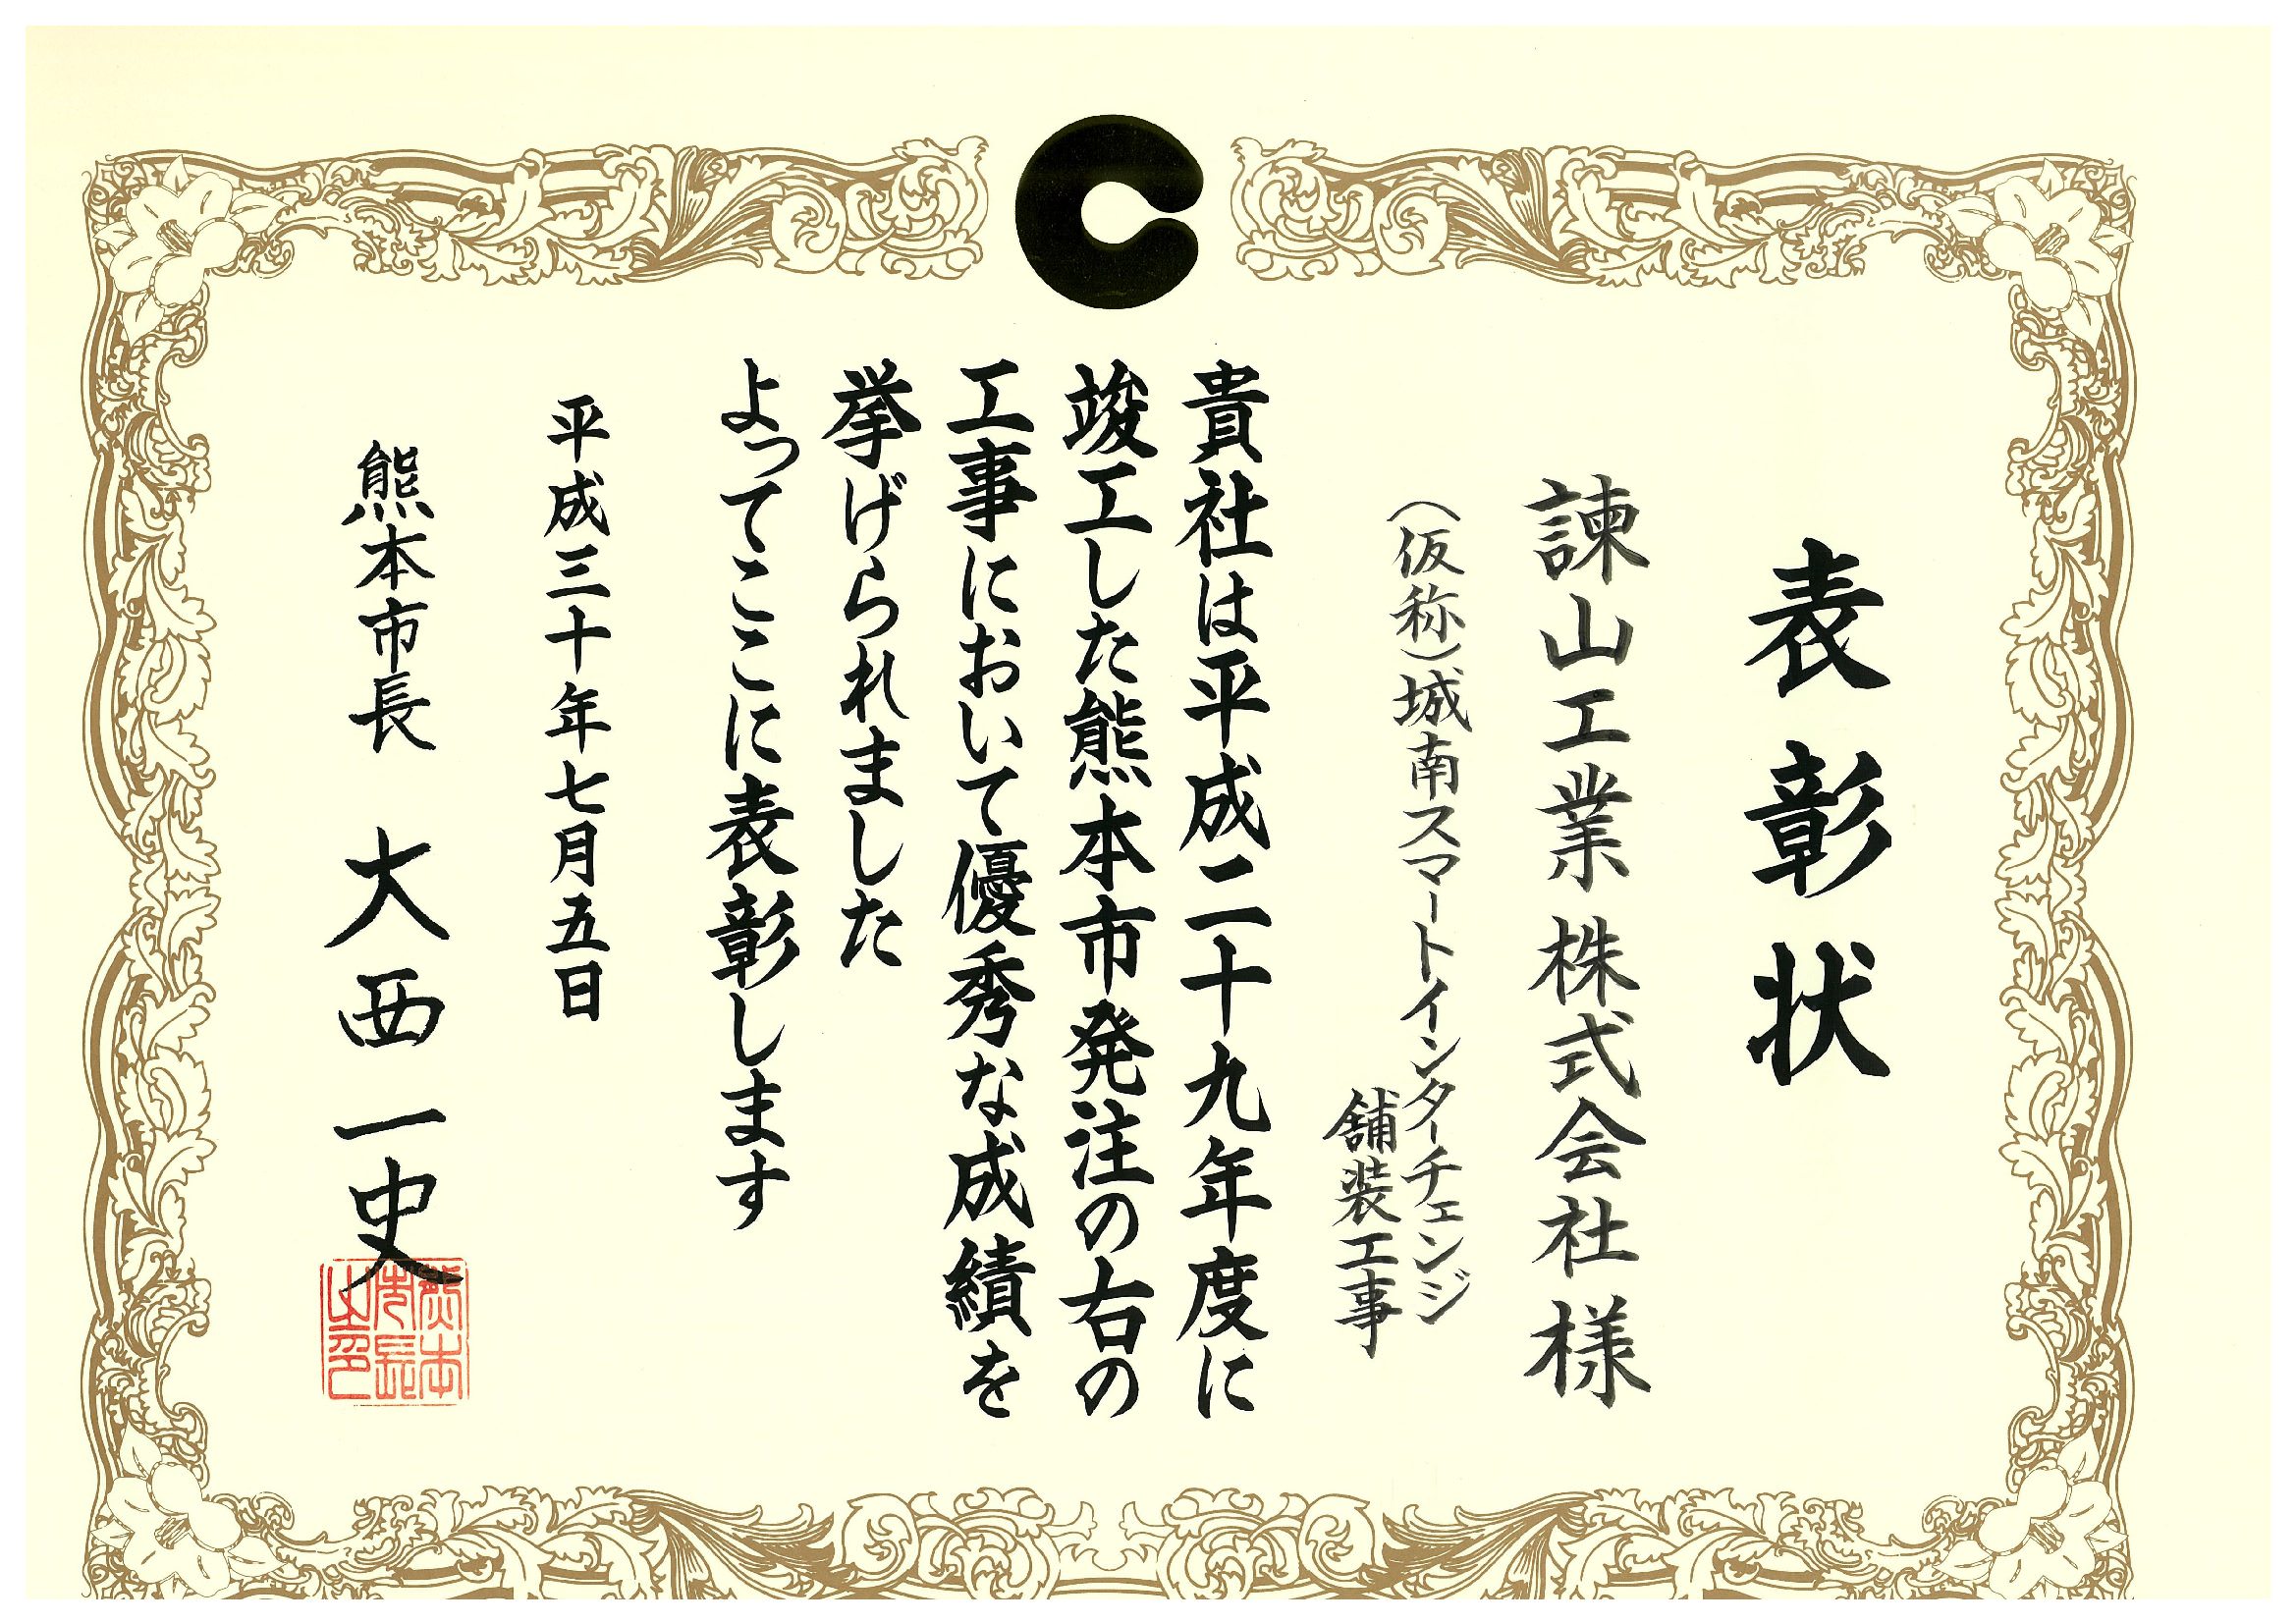 表彰状
諫山工業株式会社様
（仮称）城南スマートインターチェンジ
舗装工事
貴社は平成二十九年度に
竣工した熊本市発注の右の
工事において優秀な成績を
挙げられました
よってここに表彰します
平成三十年七月五日
熊本市長 大西一史
熊本
市長
之印